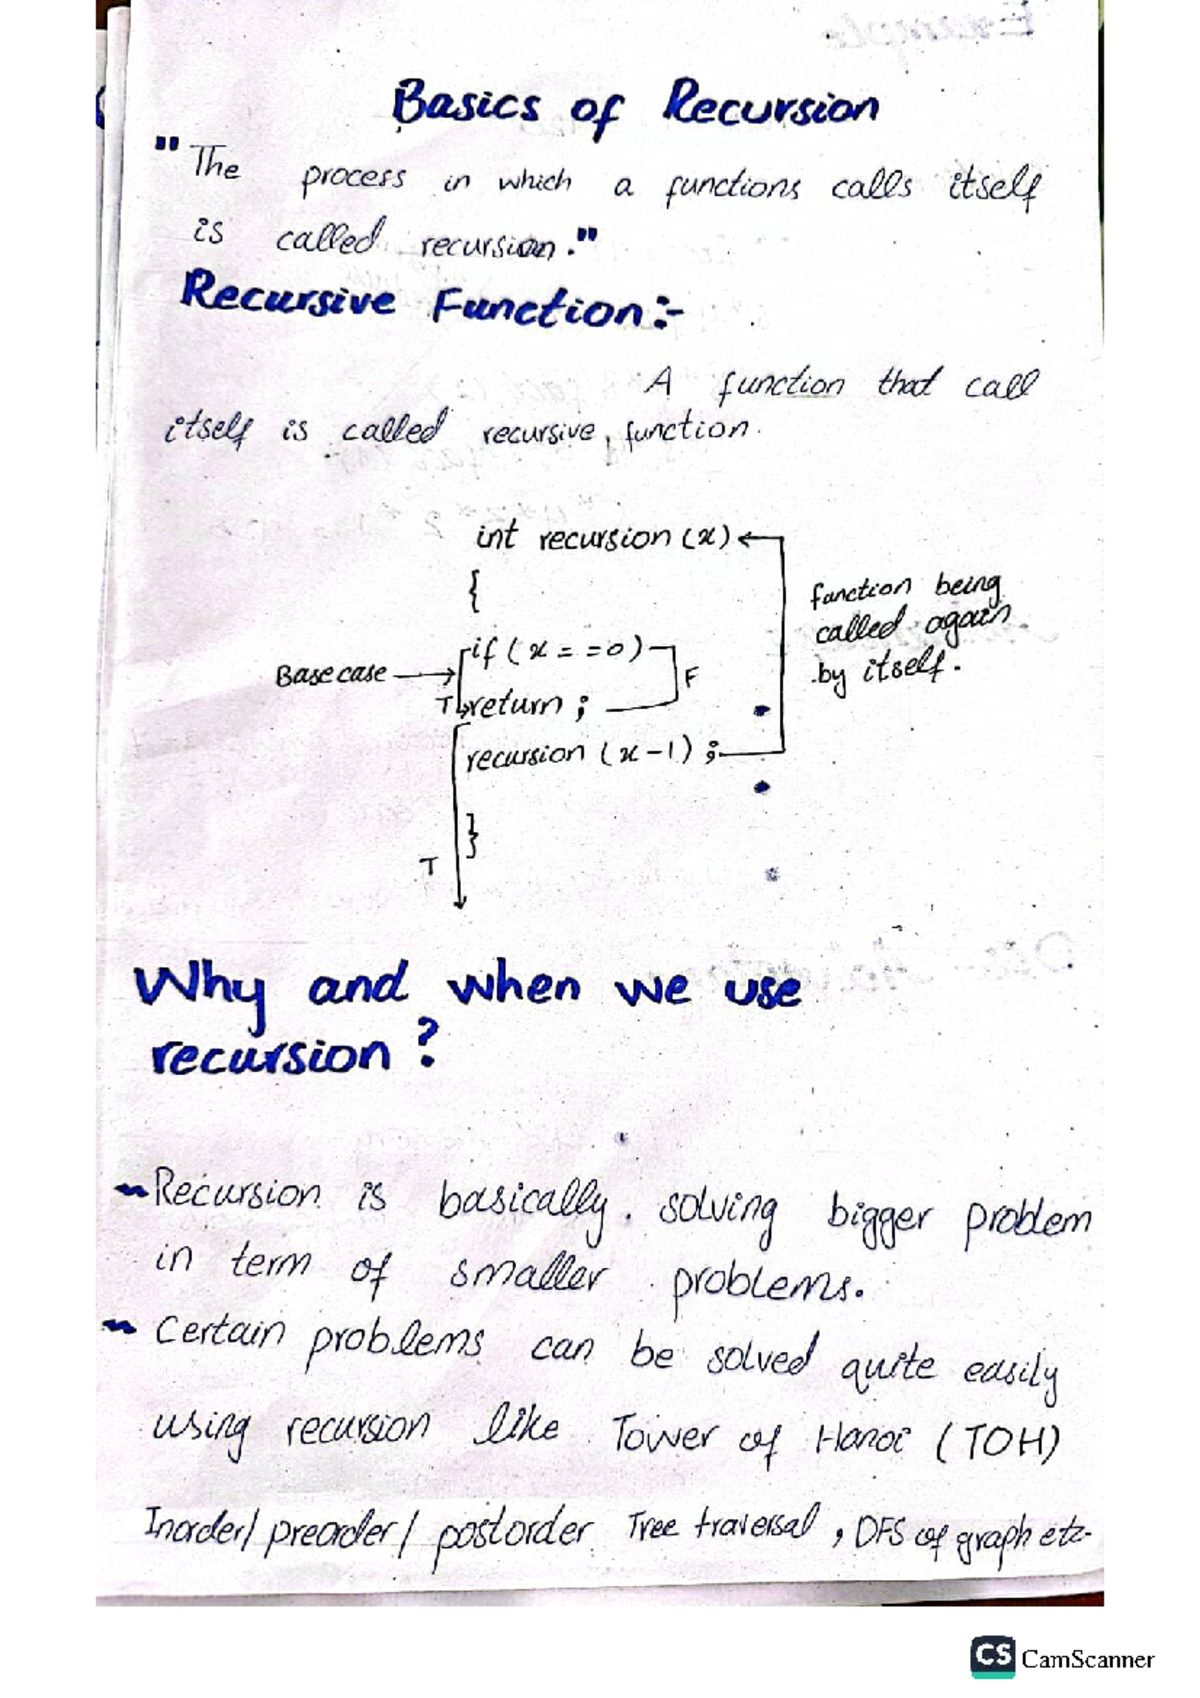 Basics of Recursion
"The process in which a functions calls itself
is called recursion."
Recursive Function:-
A function that call
itself is called recursive function.
int recursion (x)
{
if (x = = 0)
Base case
F
T
return ;
recursion (x-1) ;
}
T
function being
called again
by itself.
Why and when we use
recursion ?
~Recursion is basically solving bigger problem
in term of smaller problems.
~ Certain problems can be solved quite easily
using recursion like Tower of Hanoi (TOH)
Inorder/ preorder/ postorder Tree traversal , DFS of graph etc.
CS CamScanner